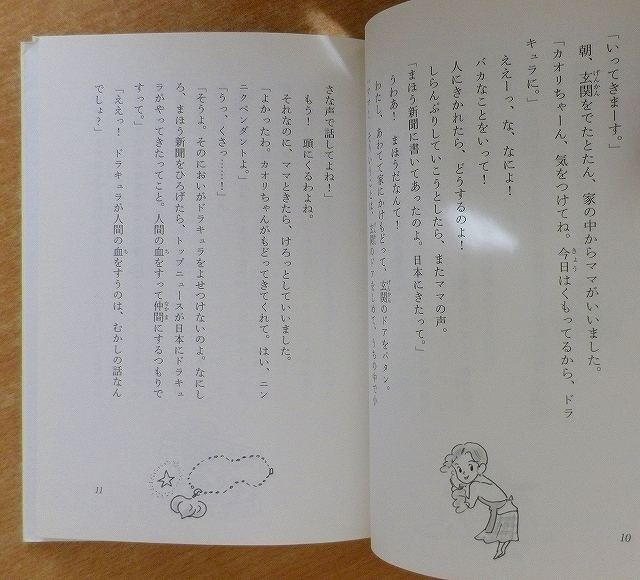 「いってきまーす。」
朝、玄関をでたとたん、家の中からママがいいました。
「カオリちゃーん、気をつけてね。今日はくもってるから、ドラ
キュラに。」
ええーっ、な、なによ！
バカなことをいって！
人にきかれたら、どうするのよ！
しらんぷりしていこうとしたら、またママの声。
「まほう新聞に書いてあったのよ。日本にきたって。」
うわあ！　まほうだなんて！
わたし、あわてて家にかけもどって、玄関のドアをバタン。
10
さな声で話してよね！」
もう！　頭にくるわよね。
それなのに、ママときたら、けろっとしていいました。
「よかったわ。カオリちゃんがもどってきてくれて。はい、ニン
ニクペンダントよ。」
「うっ、くさっ……！」
「そうよ。そのにおいがドラキュラをよせつけないのよ。なにし
ろ、まほう新聞をひろげたら、トップニュースが日本にドラキュ
ラがやってきたってこと。人間の血をすって仲間にするつもりで
すって。」
「ええっ！　ドラキュラが人間の血をすうのは、むかしの話なん
でしょ？」
11